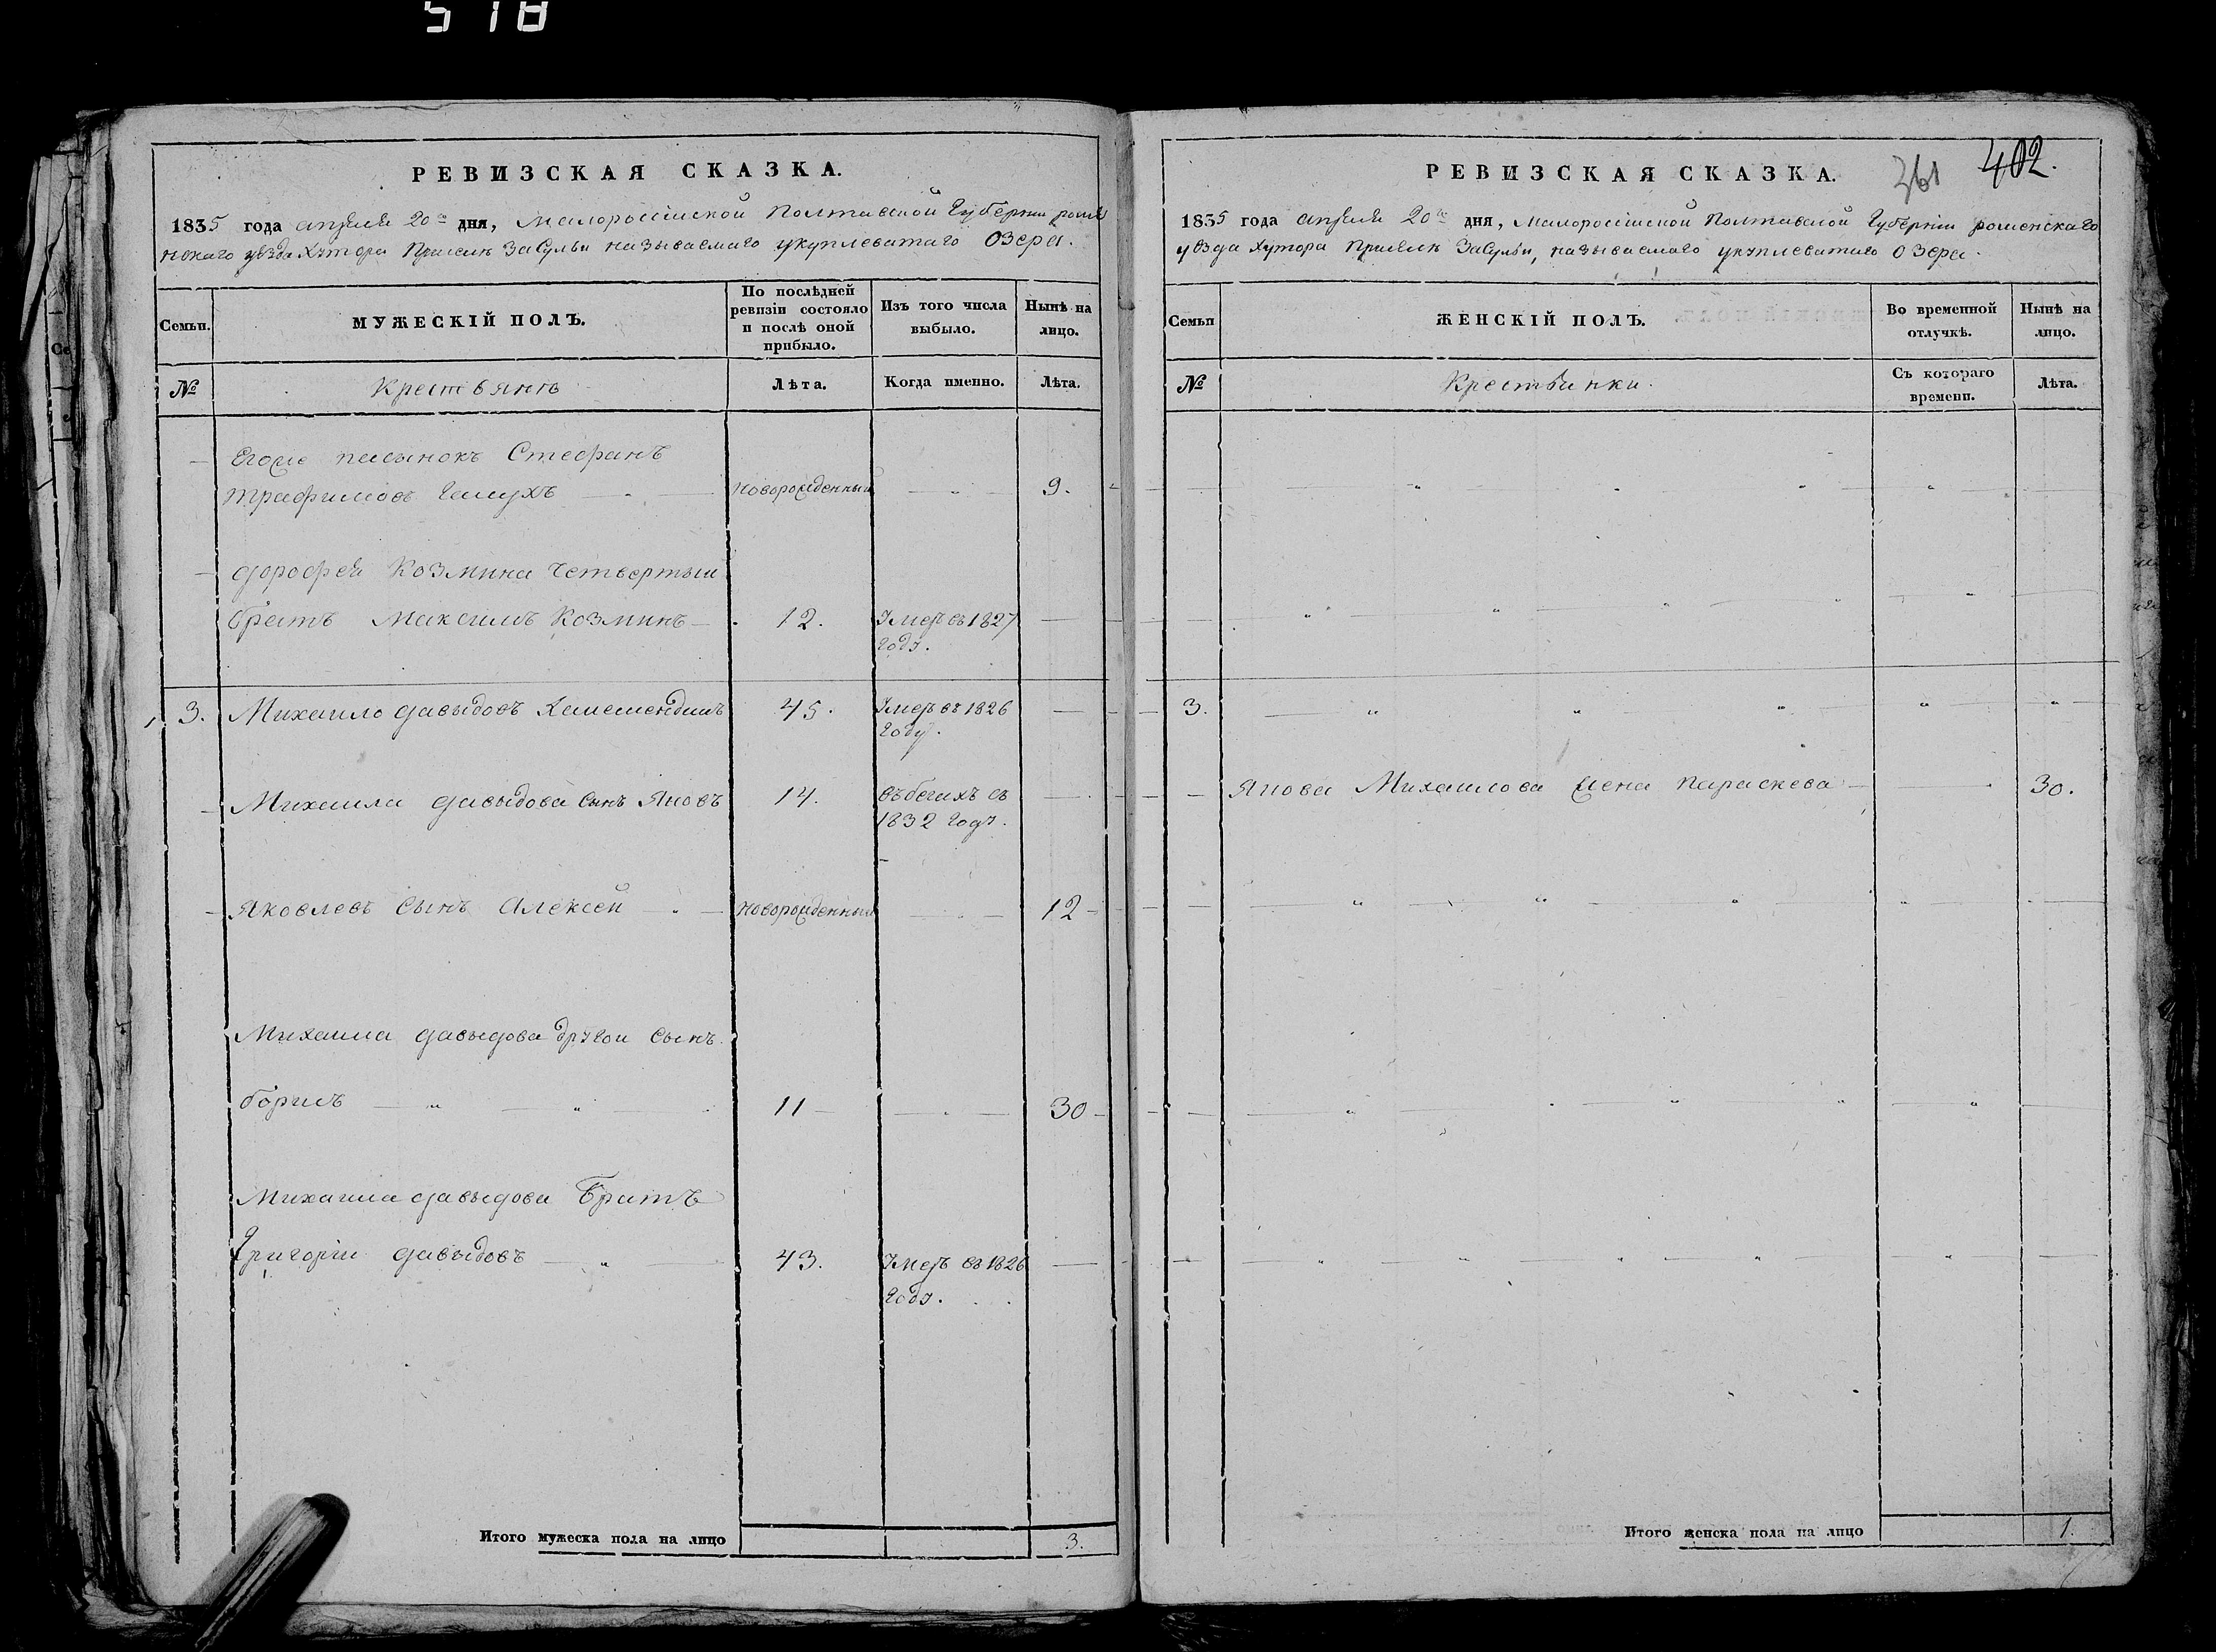 518
РЕВИЗСКАЯ СКАЗКА.
1835 года апреля 20го дня, Малороссійской Полтавской Губерніи роме
нскаго уѣзда Хутора Присѣлк Засулья называемаго укуплеватаго Озера.
Семьи.
МУЖЕСКІЙ ПОЛЪ.
По послѣдней
ревизіи состояло
и послѣ оной
прибыло.
Изъ того числа
выбыло.
Нынѣ на
лицо.
№
Крестьянъ
Лѣта.
Когда именно.
Лѣта.
Егоже пасынокъ Стефанъ
Трафимовъ новорожденный 9.
Дорофея Козмина четвертый
братъ Максимъ Козминъ 12. Умеръ въ 1827
году.
3. Михайло Давыдовъ 45. Умеръ въ 1826
году.
Михайла Давыдова сынъ Яковъ 14. въ бегахъ съ
1832 году.
Яковлевъ сынъ Алексей новорожденный 12
Михайла Давыдова другои сынъ
борисъ 11 30
Михайла Давыдова братъ
Григорій Давыдовъ 43. Умеръ въ 1826
году.
Итого мужеска пола на лицо 3.
РЕВИЗСКАЯ СКАЗКА. 361 402.
1835 года апреля 20го дня, Малороссійской Полтавской Губерніи роменскаго
уѣзда Хутора Присѣлк Засулья, называемаго укуплеватаго Озера.
Семьи
ЖЕНСКІЙ ПОЛЪ.
Во временной
отлучкѣ.
Нынѣ на
лицо.
№
Крестьянки.
Съ котораго
времени.
Лѣта.
3.
Якова Михайлова жена параскева 30.
Итого женска пола на лицо 1.